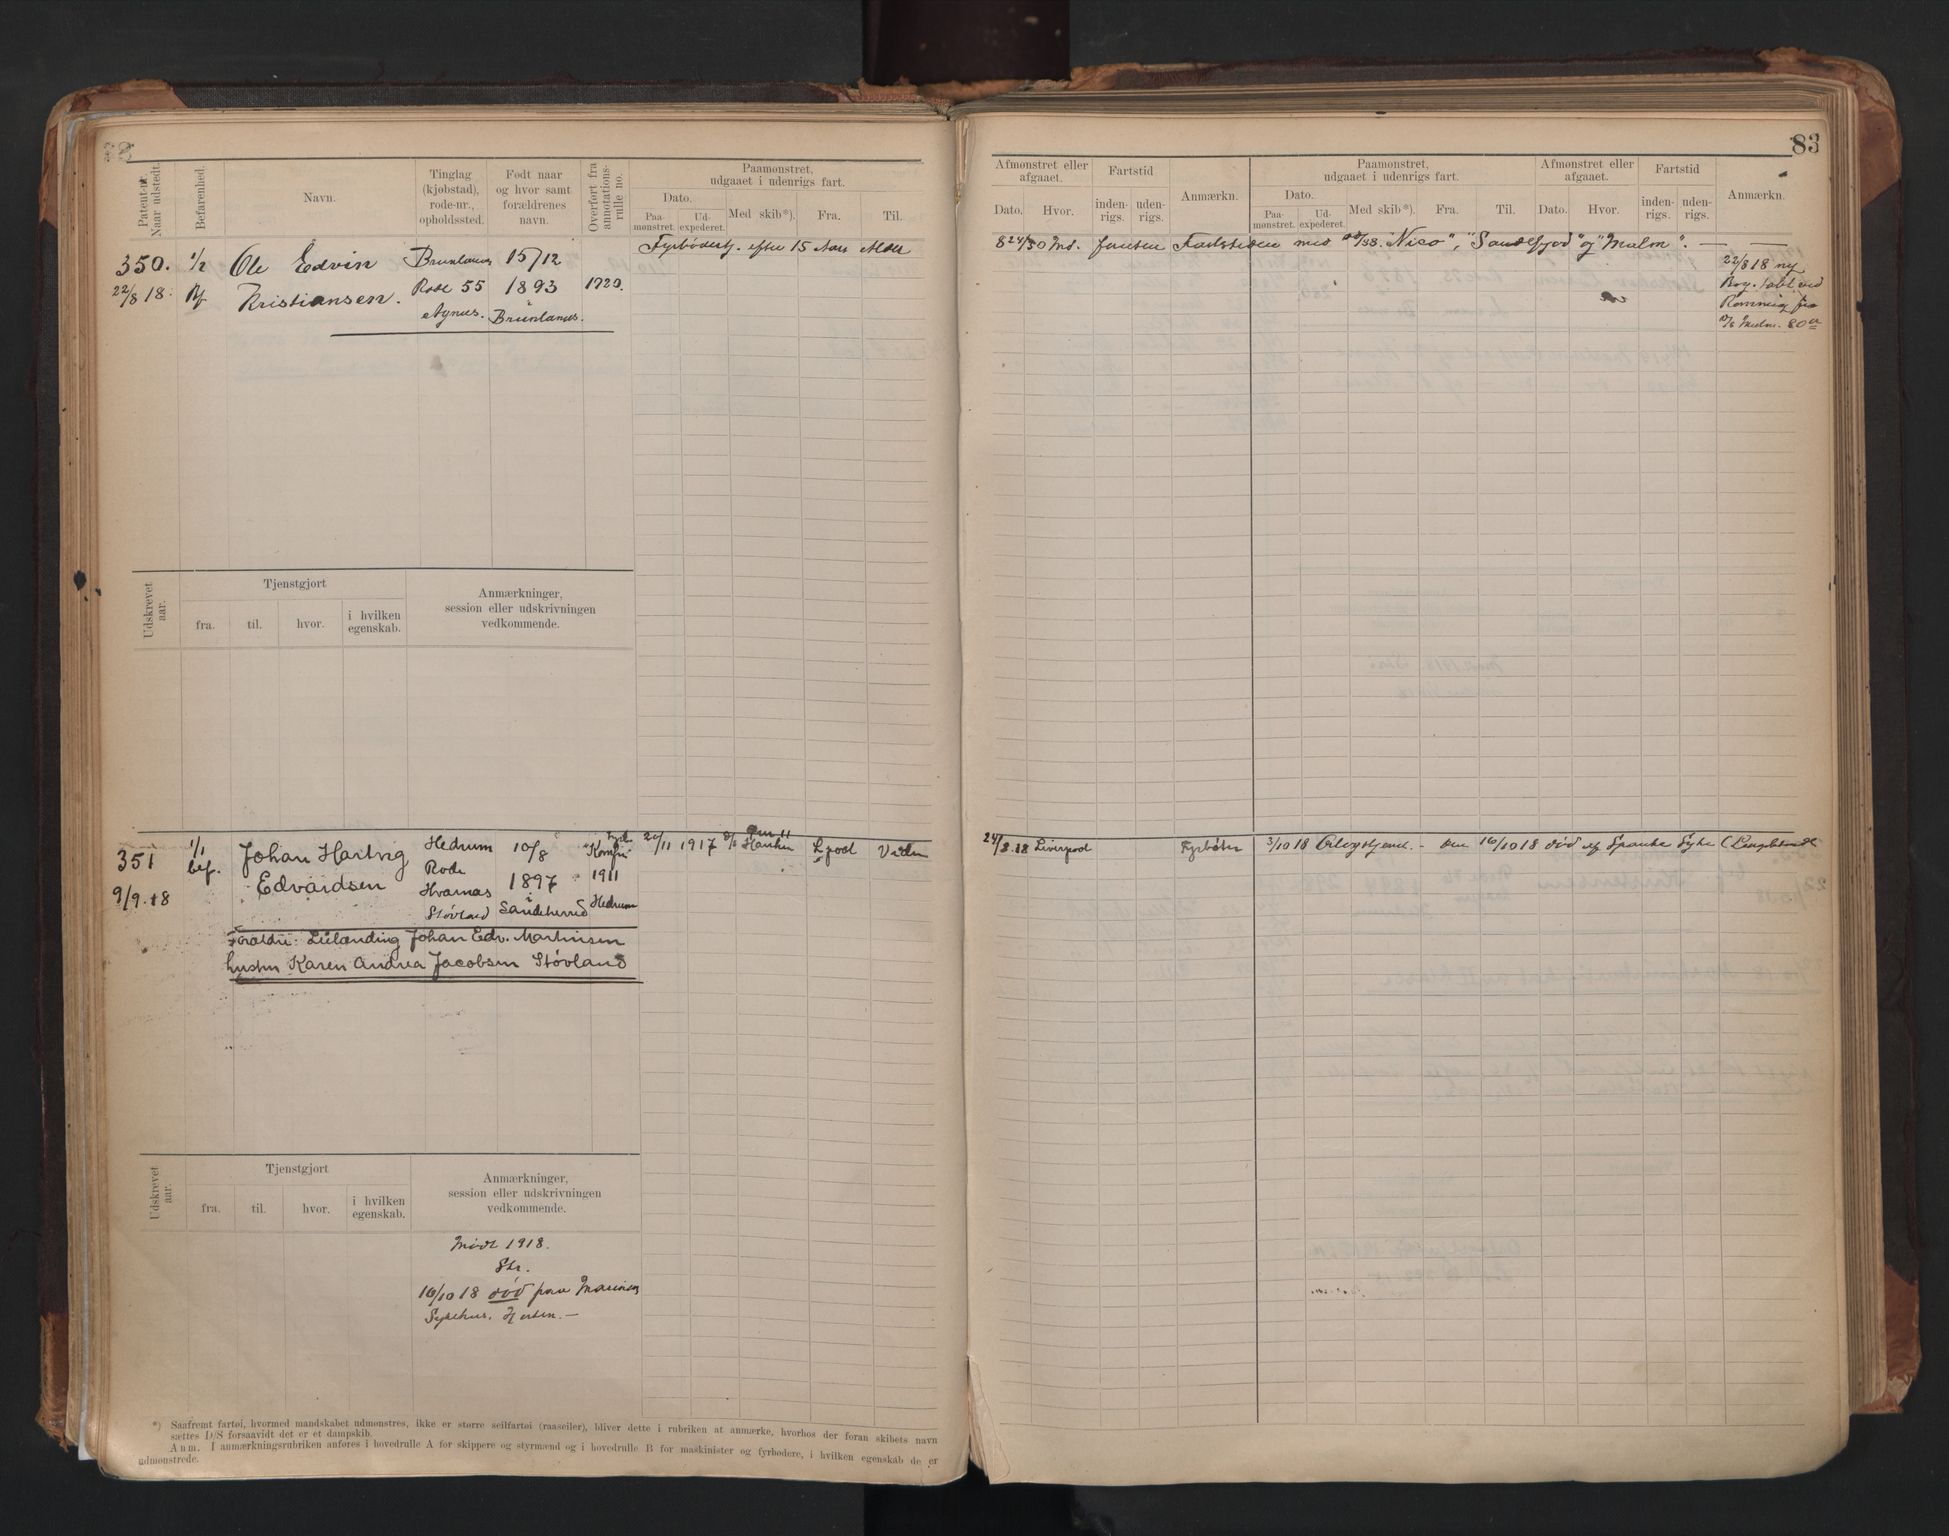 83
Patent-nr. Naar udstedt.
Befarenhed.
Navn.
Tinglag (kjøbstad), rode-nr., opholdssted.
Født naar og hvor samt forældrenes navn.
Overført fra annotations-rulle no.
Paamønstret, udgaaet i udenrigs fart.
Dato.
Paa-mønstret.
Ud-expederet.
Med skib*).
Fra.
Til.
Afmønstret eller afgaaet.
Dato.
Hvor.
Fartstid
inden-rigs.
uden-rigs.
Anmærkn.
Paamønstret, udgaaet i udenrigs fart.
Dato.
Paa-mønstret.
Ud-expederet.
Med skib*).
Fra.
Til.
Afmønstret eller afgaaet.
Dato.
Hvor.
Fartstid
inden-rigs.
uden-rigs.
Anmærkn.
350. 1/2 Ole Edvin Brunlanes 15/12
22/8 18. Kristiansen. Rode 55 1893 1720.
Agnes. Brunlanes.
efter 15 Aars Alder
8 24/30 Md. Fartstiden med "Nico", "Sandefjord" og "Malm". — —
22/8 18 ny
80
Udskrevet aar.
Tjenstgjort
fra.
til.
hvor.
i hvilken egenskab.
Anmærkninger, session eller udskrivningen vedkommende.
351 1/1 Johan Hartvig Hedrum 10/8
9/9.18 bef. Edvardsen Rode 1897 1911
Hvarnes Sandeherred Hedrum
Støvland
11 1917
Forældre: Leilænding Johan Edv. Martinsen
hustru Karen Andrea Jacobsen Støvland
24/8.18 Liverpool Fyrbøter 3/10 18 Orlogstjeneste. — den 16/10 18 død af Spanske Syke
Udskrevet aar.
Tjenstgjort
fra.
til.
hvor.
i hvilken egenskab.
Anmærkninger, session eller udskrivningen vedkommende.
Mødt 1918.
Str.
16/10 18 død paa Marinens
Sykehus. Horten. —
*) Saafremt fartøi, hvormed mandskabet udmønstres, ikke er større seilfartøi (raaseiler), bliver dette i rubriken at anmærke, hvorhos der foran skibets navn
sættes D/S forsaavidt det er et dampskib.
Anm. I anmærkningsrubriken anføres i hovedrulle A for skippere og styrmænd og i hovedrulle B for maskinister og fyrbødere, i hvilken egenskab de er
udmønstrede.